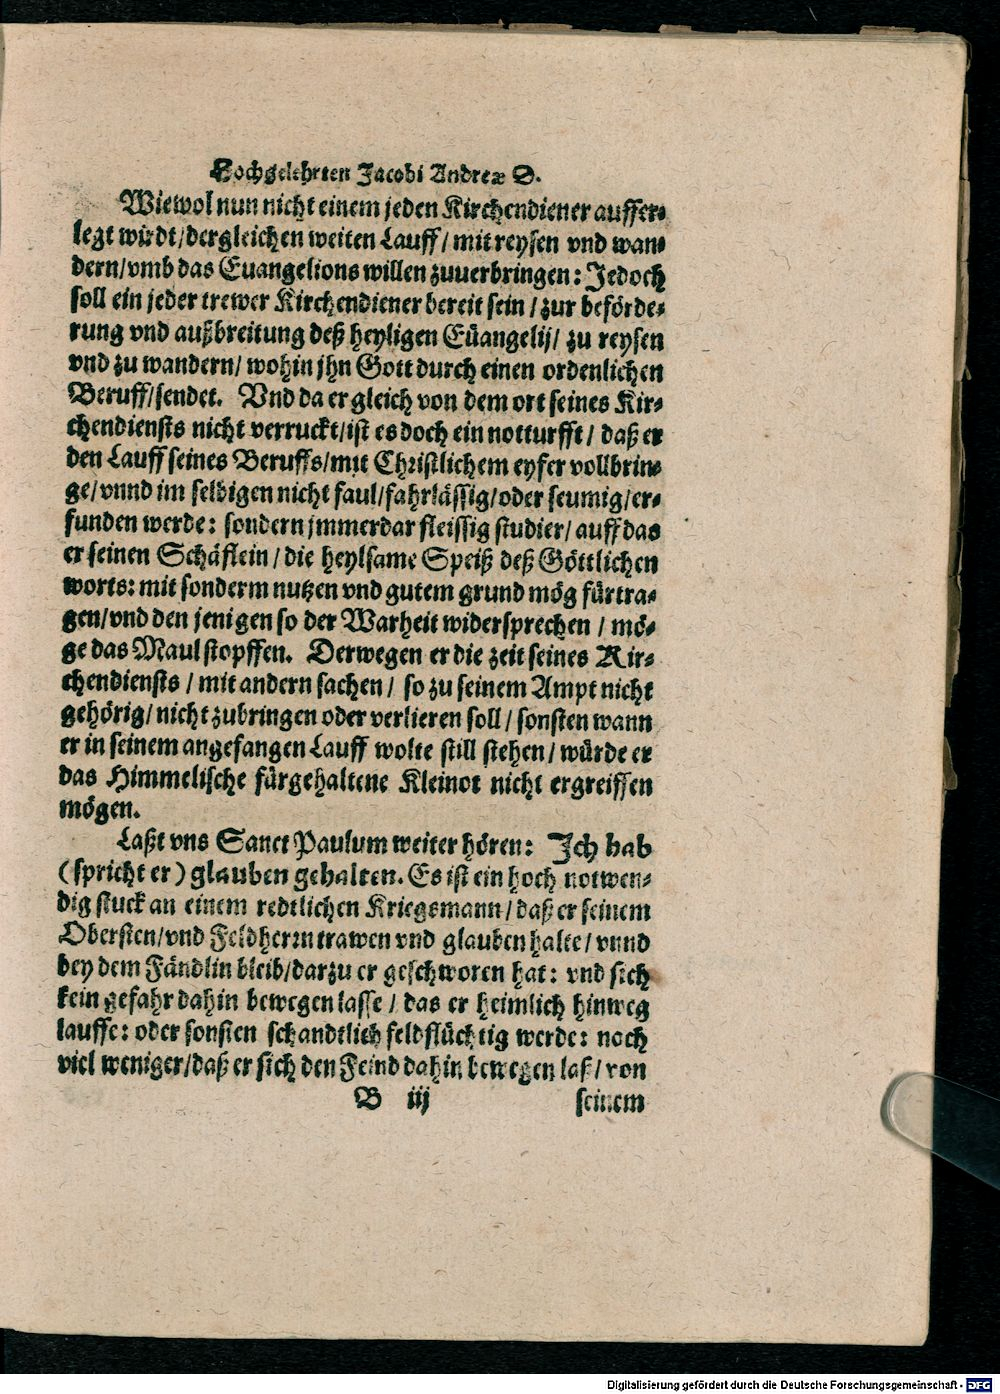 Hochgelehrten Jacobi Andreæ D.
Wiewol nun nicht einem jeden Kirchendiener auffer-
legt wirdt/dergleichen weiten Lauff/ mit reysen vnd wan-
dern/vmb das Euangelions willen zuuerbringen: Jedoch
soll ein jeder trewer Kirchendiener bereit sein / zur beförde-
rung vnd außbreitung deß heyligen Eüangelij/ zu reysen
vnd zu wandern/ wohin jhn Gott durch einen ordenlichen
Beruff/sendet. Vnd da er gleich von dem ort seines Kir-
chendiensts nicht verruckt/ist es doch ein notturfft/ daß er
den Lauff seines Beruffs/mit Christlichem eyfer vollbrin-
ge/vnnd im selbigen nicht faul/fahrlässig/oder seumig/er-
funden werde: sondern jmmerdar fleissig studier/ auff das
er seinen Schäflein / die heylsame Speiß deß Göttlichen
worts: mit sonderm nutzen vnd gutem grund mög fürtra-
gen/vnd den jenigen so der Warheit widersprechen / mö-
ge das Maul stopffen. Derwegen er die zeit seines Kir-
chendiensts / mit andern sachen / so zu seinem Ampt nicht
gehörig/ nicht zubringen oder verlieren soll / sonsten wann
er in seinem angefangen Lauff wolte still stehen/ würde er
das Himmelische fürgehaltene Kleinot nicht ergreiffen
mögen.
Laßt vns Sanct Paulum weiter hören: Ich hab
(spricht er) glauben gehalten. Es ist ein hoch notwen-
dig stuck an einem redtlichen Kriegsmann/ daß er seinem
Obersten/vnd Feldherrn trawen vnd glauben halte/ vnnd
bey dem Fändlin bleib/darzu er geschworen hat: vnd sich
kein gefahr dahin bewegen lasse / das er heimlich hinweg
lauffe: oder sonsten schandtlich feldflüchtig werde: noch
viel weniger/daß er sich den Feind dahin bewegen laß/ von
B iij seinem
Digitalisierung gefördert durch die Deutsche Forschungsgemeinschaft - DFG